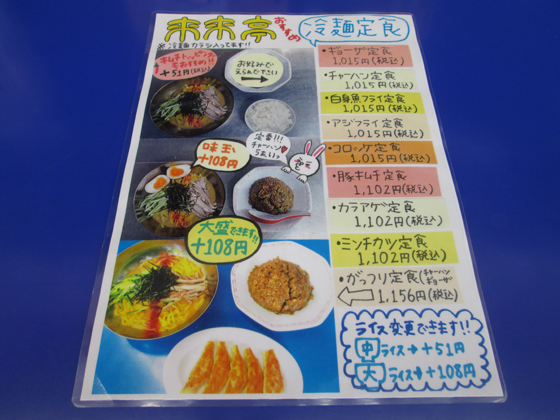 来来亭
おすすめ
冷麺定食
※冷麺カラシ入ってます!!
キムチトッピング
もおすすめ!!
+51円
お好みで
えらんで下さい
味玉
+108円
定番!!!
チャーハン
うまいっ
大盛できます!!
+108円
・ギョーザ定食
1,015円(税込)
・チャーハン定食
1,015円(税込)
・白身魚フライ定食
1,015円(税込)
・アジフライ定食
1,015円(税込)
・コロッケ定食
1,015円(税込)
・豚キムチ定食
1,102円(税込)
・カラアゲ定食
1,102円(税込)
・ミンチカツ定食
1,102円(税込)
・がっつり定食(チャーハン ギョーザ)
1,156円(税込)
ライス変更できます!!
中 ライス→+51円
大 ライス→+108円